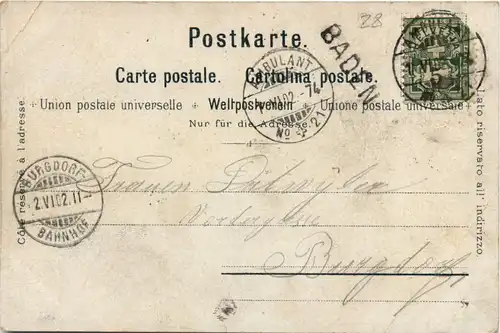 28
Postkarte.
BADEN
AMBULANT
2.VI.02.-74
No 21
HELVETIA
Carte postale. Cartolina postale.
Union postale universelle + Weltpostverein + Unione postale universale
Nur für die Adresse.
Côté réservé à l'adresse.
Lato riservato all' indirizzo
BURGDORF
2.VI.02.11-
BAHNHOF
Frauen
Burgdorf